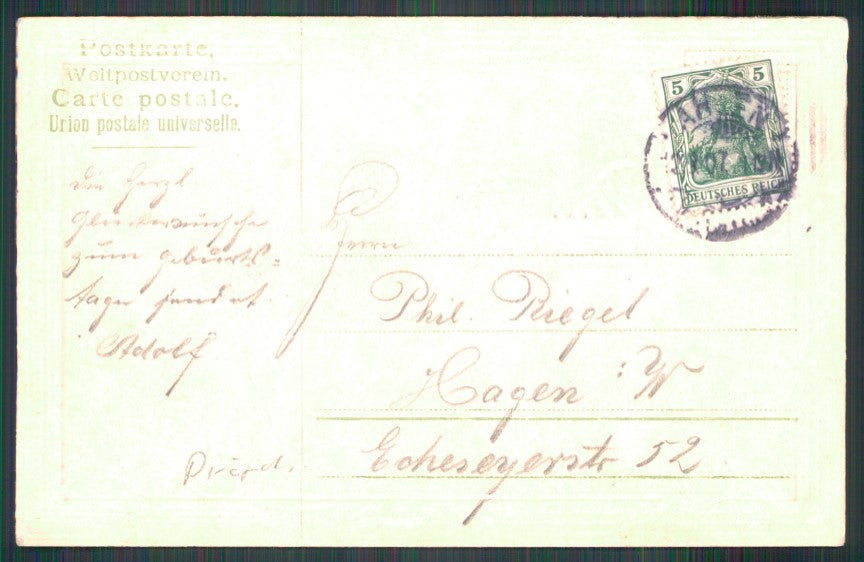 Postkarte.
Weltpostverein.
Carte postale.
Union postale universelle.
5 5
DEUTSCHES REICH
Die herzl
Glückwünsche
zum Geburts=
tage sendet
Adolf
Herrn
Phil. Riegel
Hagen i/W
Echeseyerstr 52